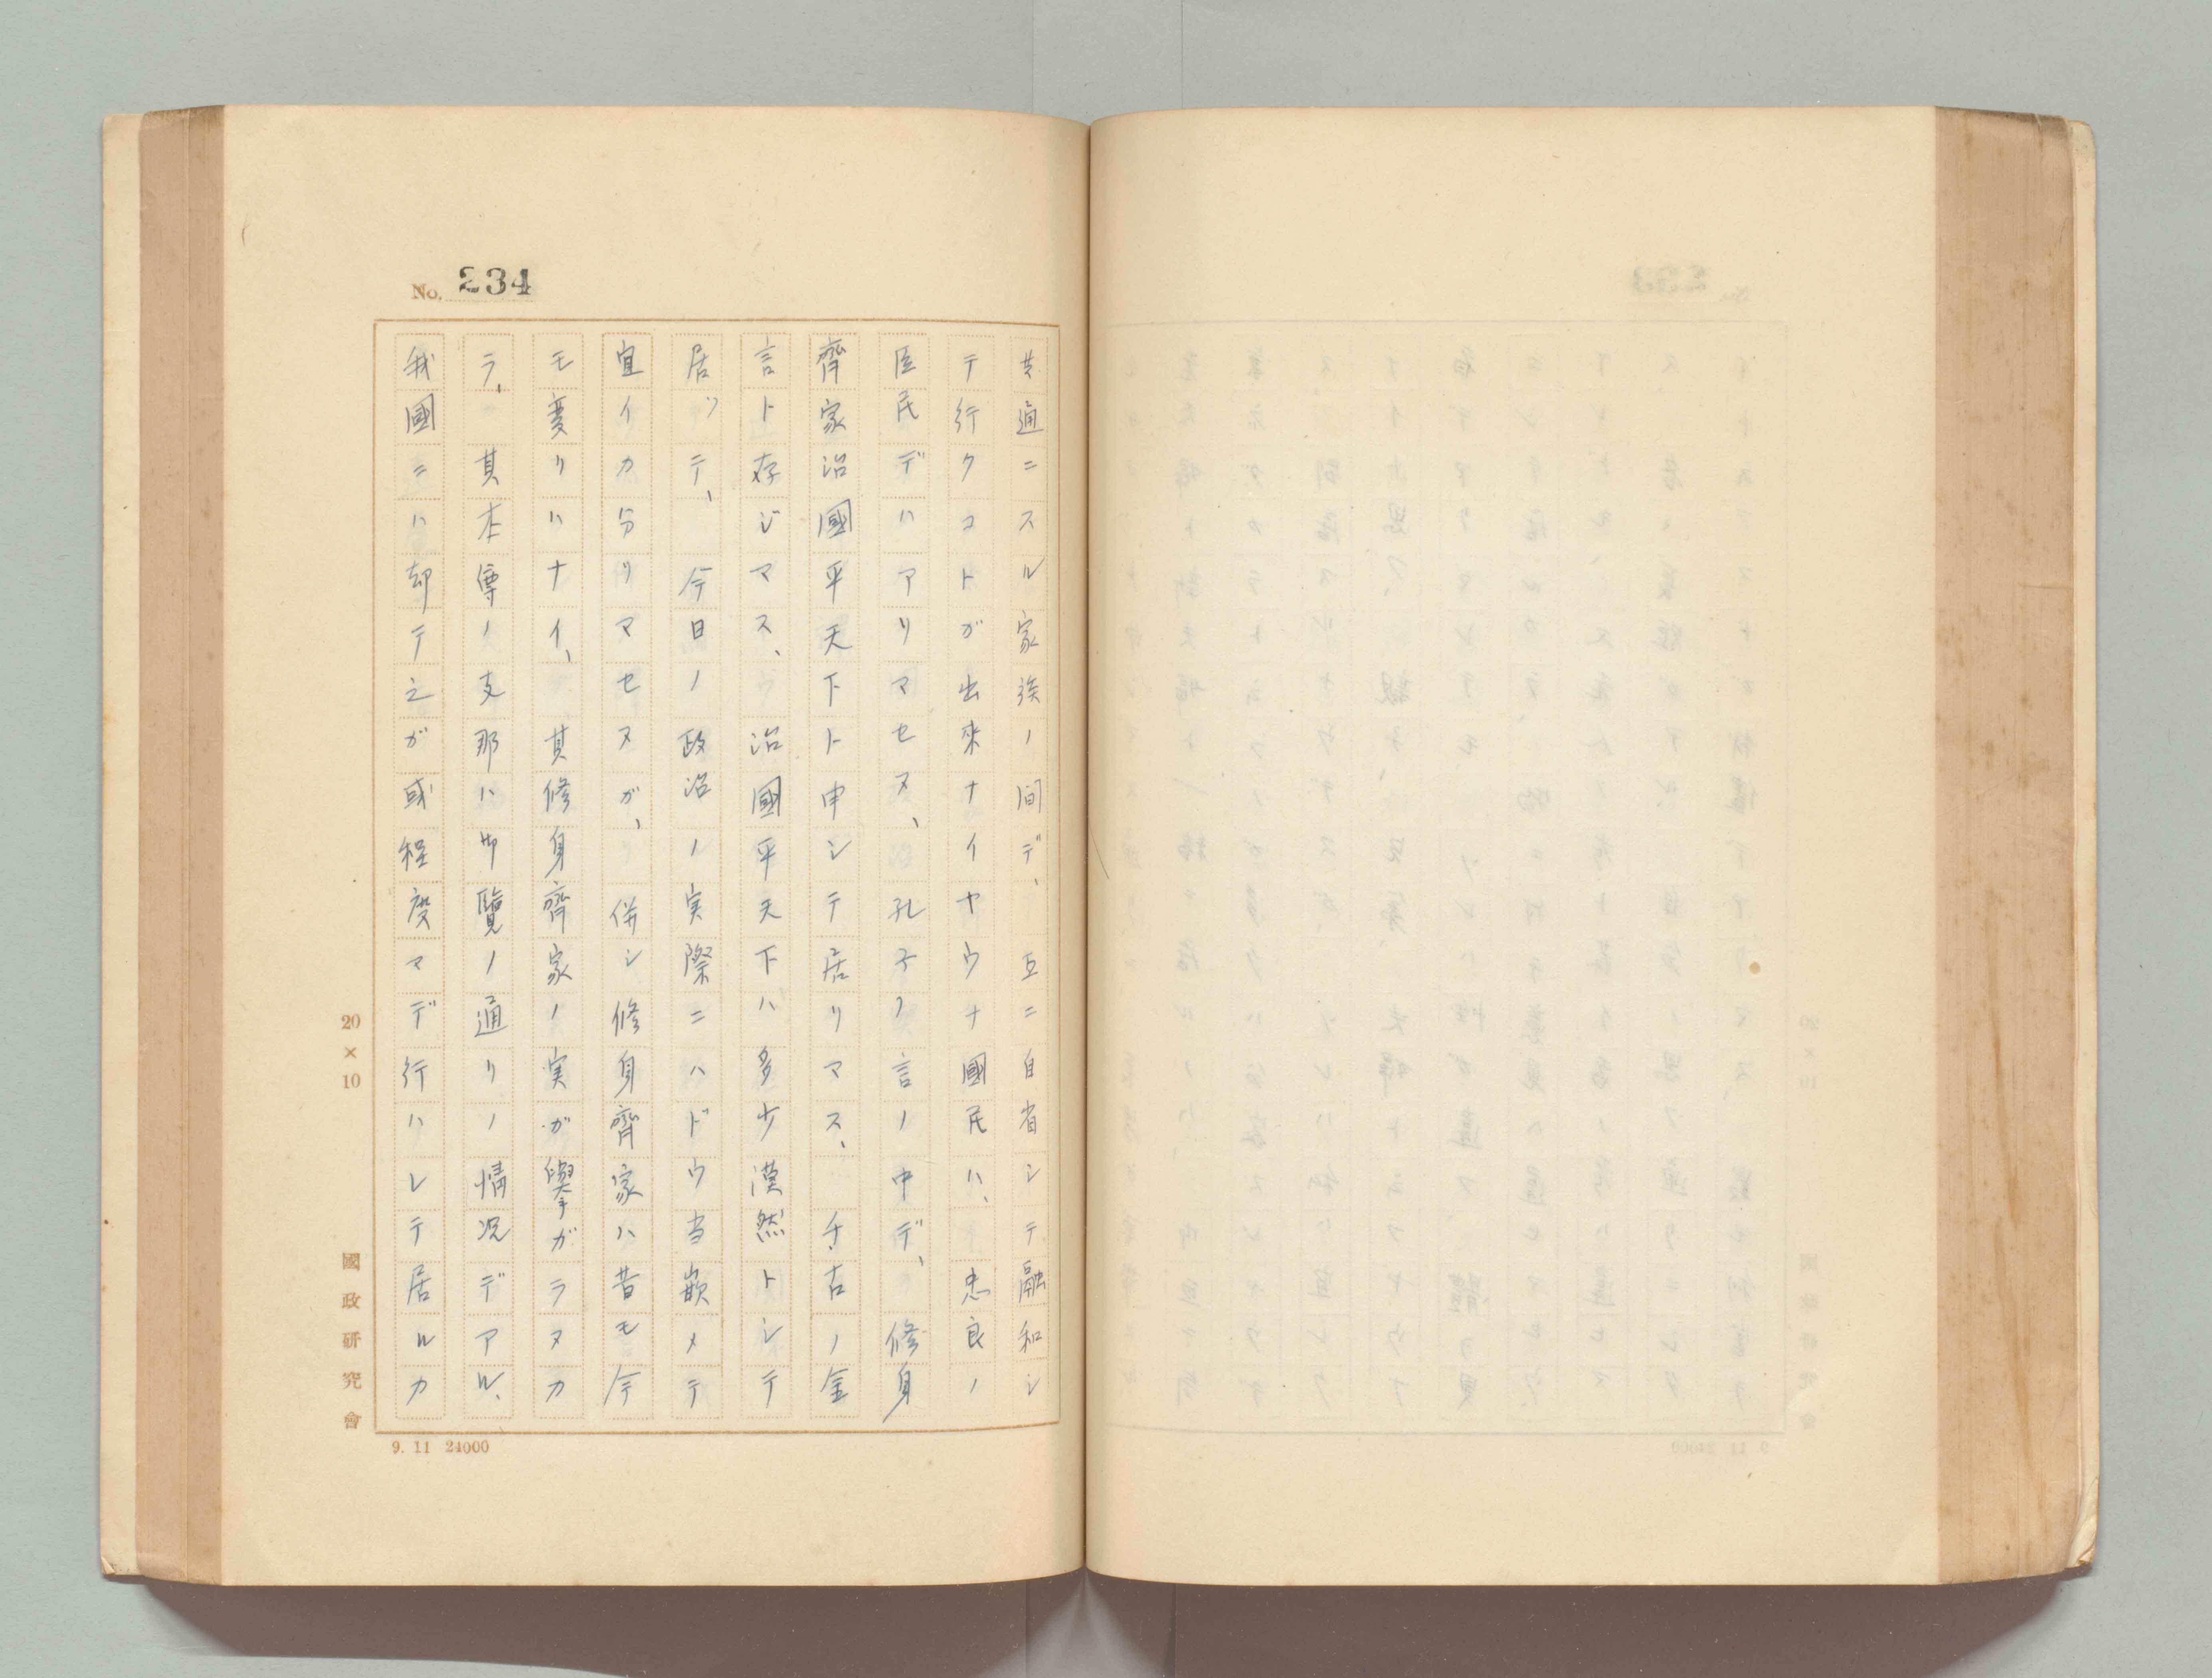 No. 234
共通ニスル家族ノ間デ、互ニ自省シテ融和シ
テ行クコトガ出來ナイヤウナ國民ハ、忠良ノ
臣民デハアリマセヌ、孔子ノ言ノ中デ、修身
齊家治國平天下ト申シテ居リマス、千古ノ金
言ト存ジマス、治國平天下ハ多少漠然トシテ
居ツテ、今日ノ政治ノ実際ニハドウ当嵌メテ
宜イカ分リマセヌガ、併シ修身齊家ハ昔モ今
モ変リハナイ、其修身齊家ノ実ガ擧ガラヌカ
ラ、其本尊ノ支那ハ御覽ノ通リノ情況デアル、
我國ニハ却テ之ガ或程度マデ行ハレテ居ルカ
20×10
國政研究會
9. 11 24000